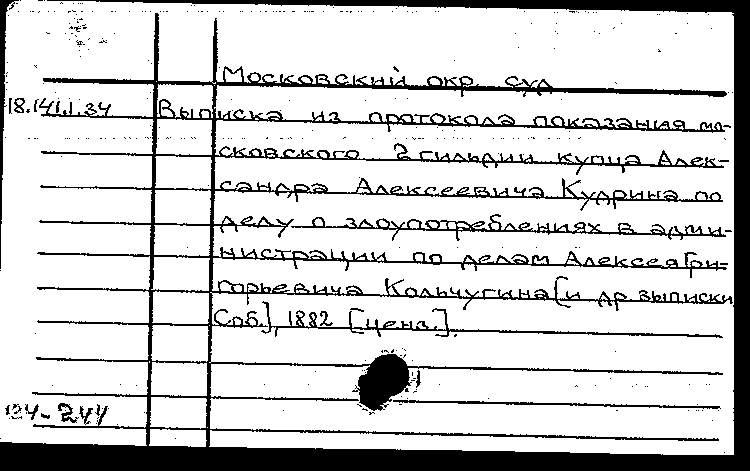 Московский окр. суд
18.141.1.34 Выписка из протокола показания мо-
сковского 2 гильдии купца Алек-
сандра Алексеевича Кудрина по
делу о злоупотреблениях в адми-
нистрации по делам Алексея Гри-
горьевича Кольчугина [и др. выписки
Спб.], 1882 [ценз.].
124-244